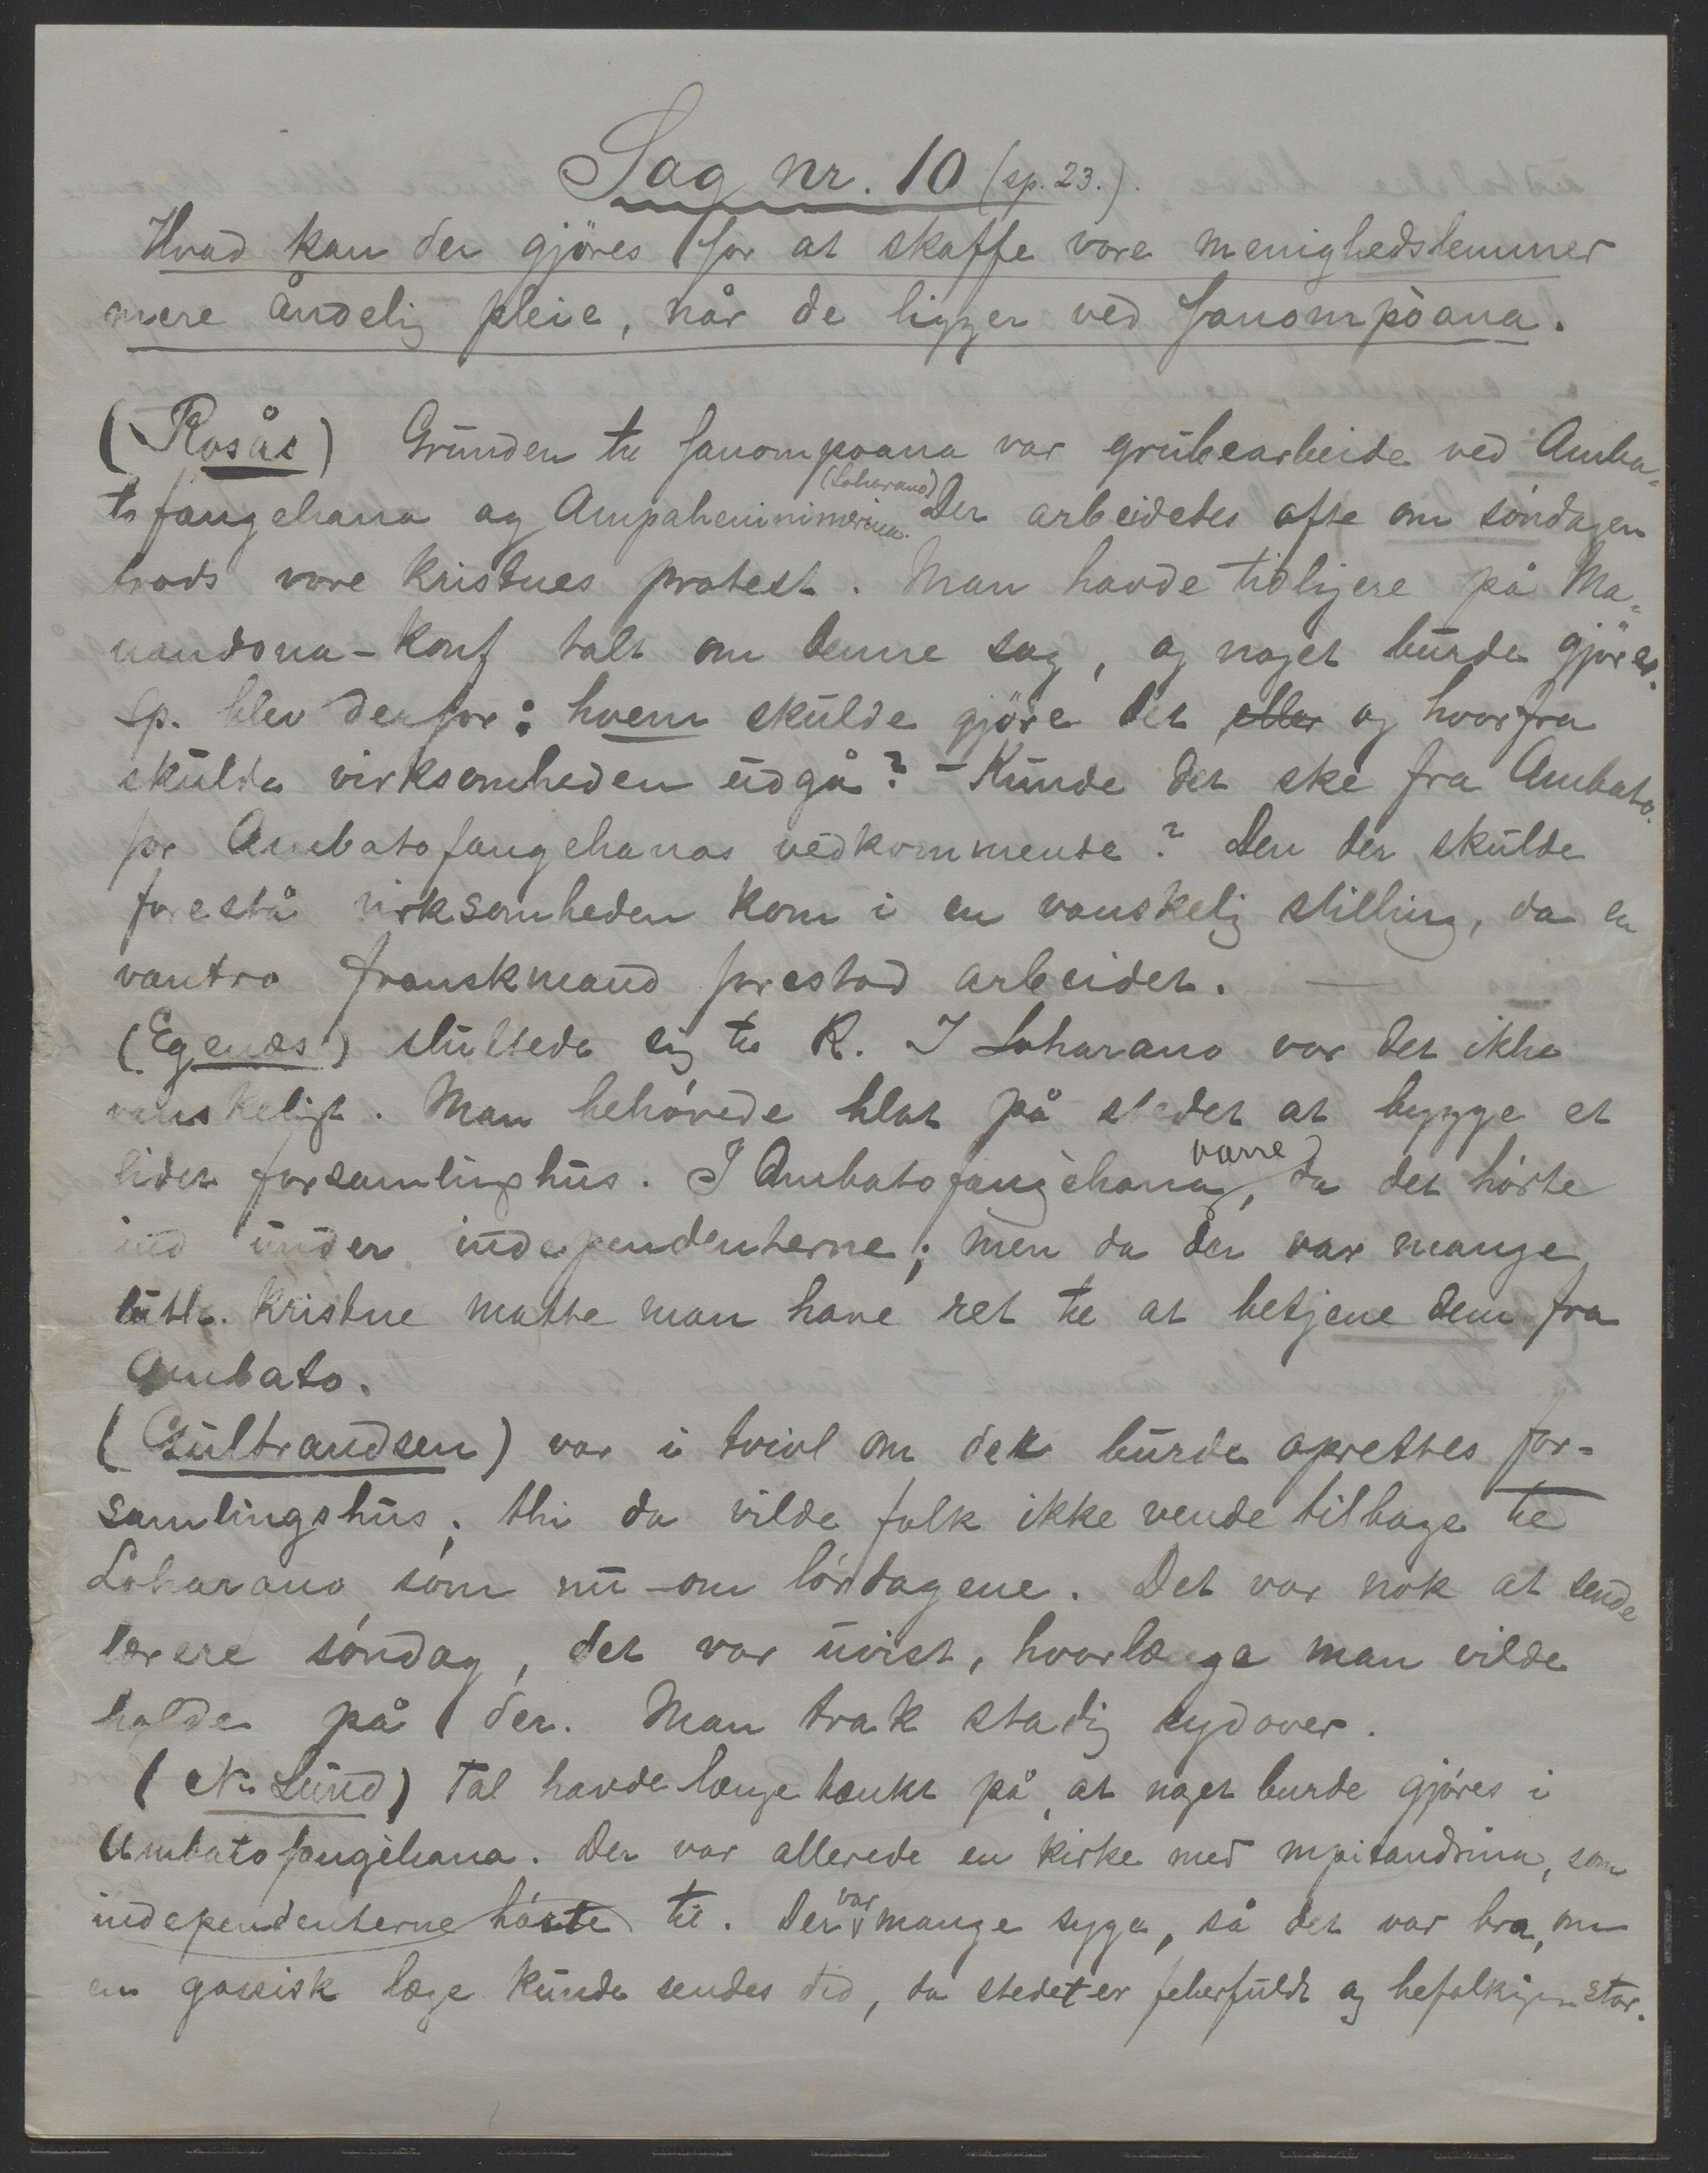 Sag nr. 10 (sp. 23.).
Hvad kan der gjöres for at skaffe vore menighedslemmer
mere åndelig pleie, når de ligger ved fanompòana.
(Rosås) Grunden til fanompoana var grubearbeide ved Amba-
tofangehana og Ampaheninimerina. (Loharano) Der arbeidetes ofte om søndagen
trods vore kristnes protest. Man havde tidligere på Ma-
nandona-konf talt om denne sag, og noget burde gjöres.
Sp. blev derfor: hvem skulde gjöre det eller og hvorfra
skulde virksomheden udgå? - Kunde det ske fra Ambato.
for Ambatofangehanas vedkommende? Den der skulde
forestå virksomheden kom i en vanskelig stilling, da en
vantro franskmand forestod arbeidet. —
(Egenæs) sluttede sig til R. I Loharano var det ikke
vanskeligt. Man behøvede blot på stedet at bygge et
lidet forsamlingshus. I Ambatofangèhana værre, da det hørte
ind under independenterne; men da der var mange
luth. kristne måtte man have ret til at betjene dem fra
Ambato.
(Gulbrandsen) var i tvivl om der burde oprettes for-
samlingshus; thi da vilde folk ikke vende tilbage til
Loharano som nu - om lørdagene. Det var nok at sende
lærere søndag, det var uvist, hvorlænge man vilde
holde på der. Man trak stadig sydover.
(N. Lund) Tal havde længe tænkt på, at noget burde gjøres i
Ambatofangèhana. Der var allerede en kirke med mpitandrina, som
independenterne hørte til. Der var mange syge, så det var bra, om
en gassisk læge kunde sendes did, da stedet er feberfuldt og befolkningen stor.